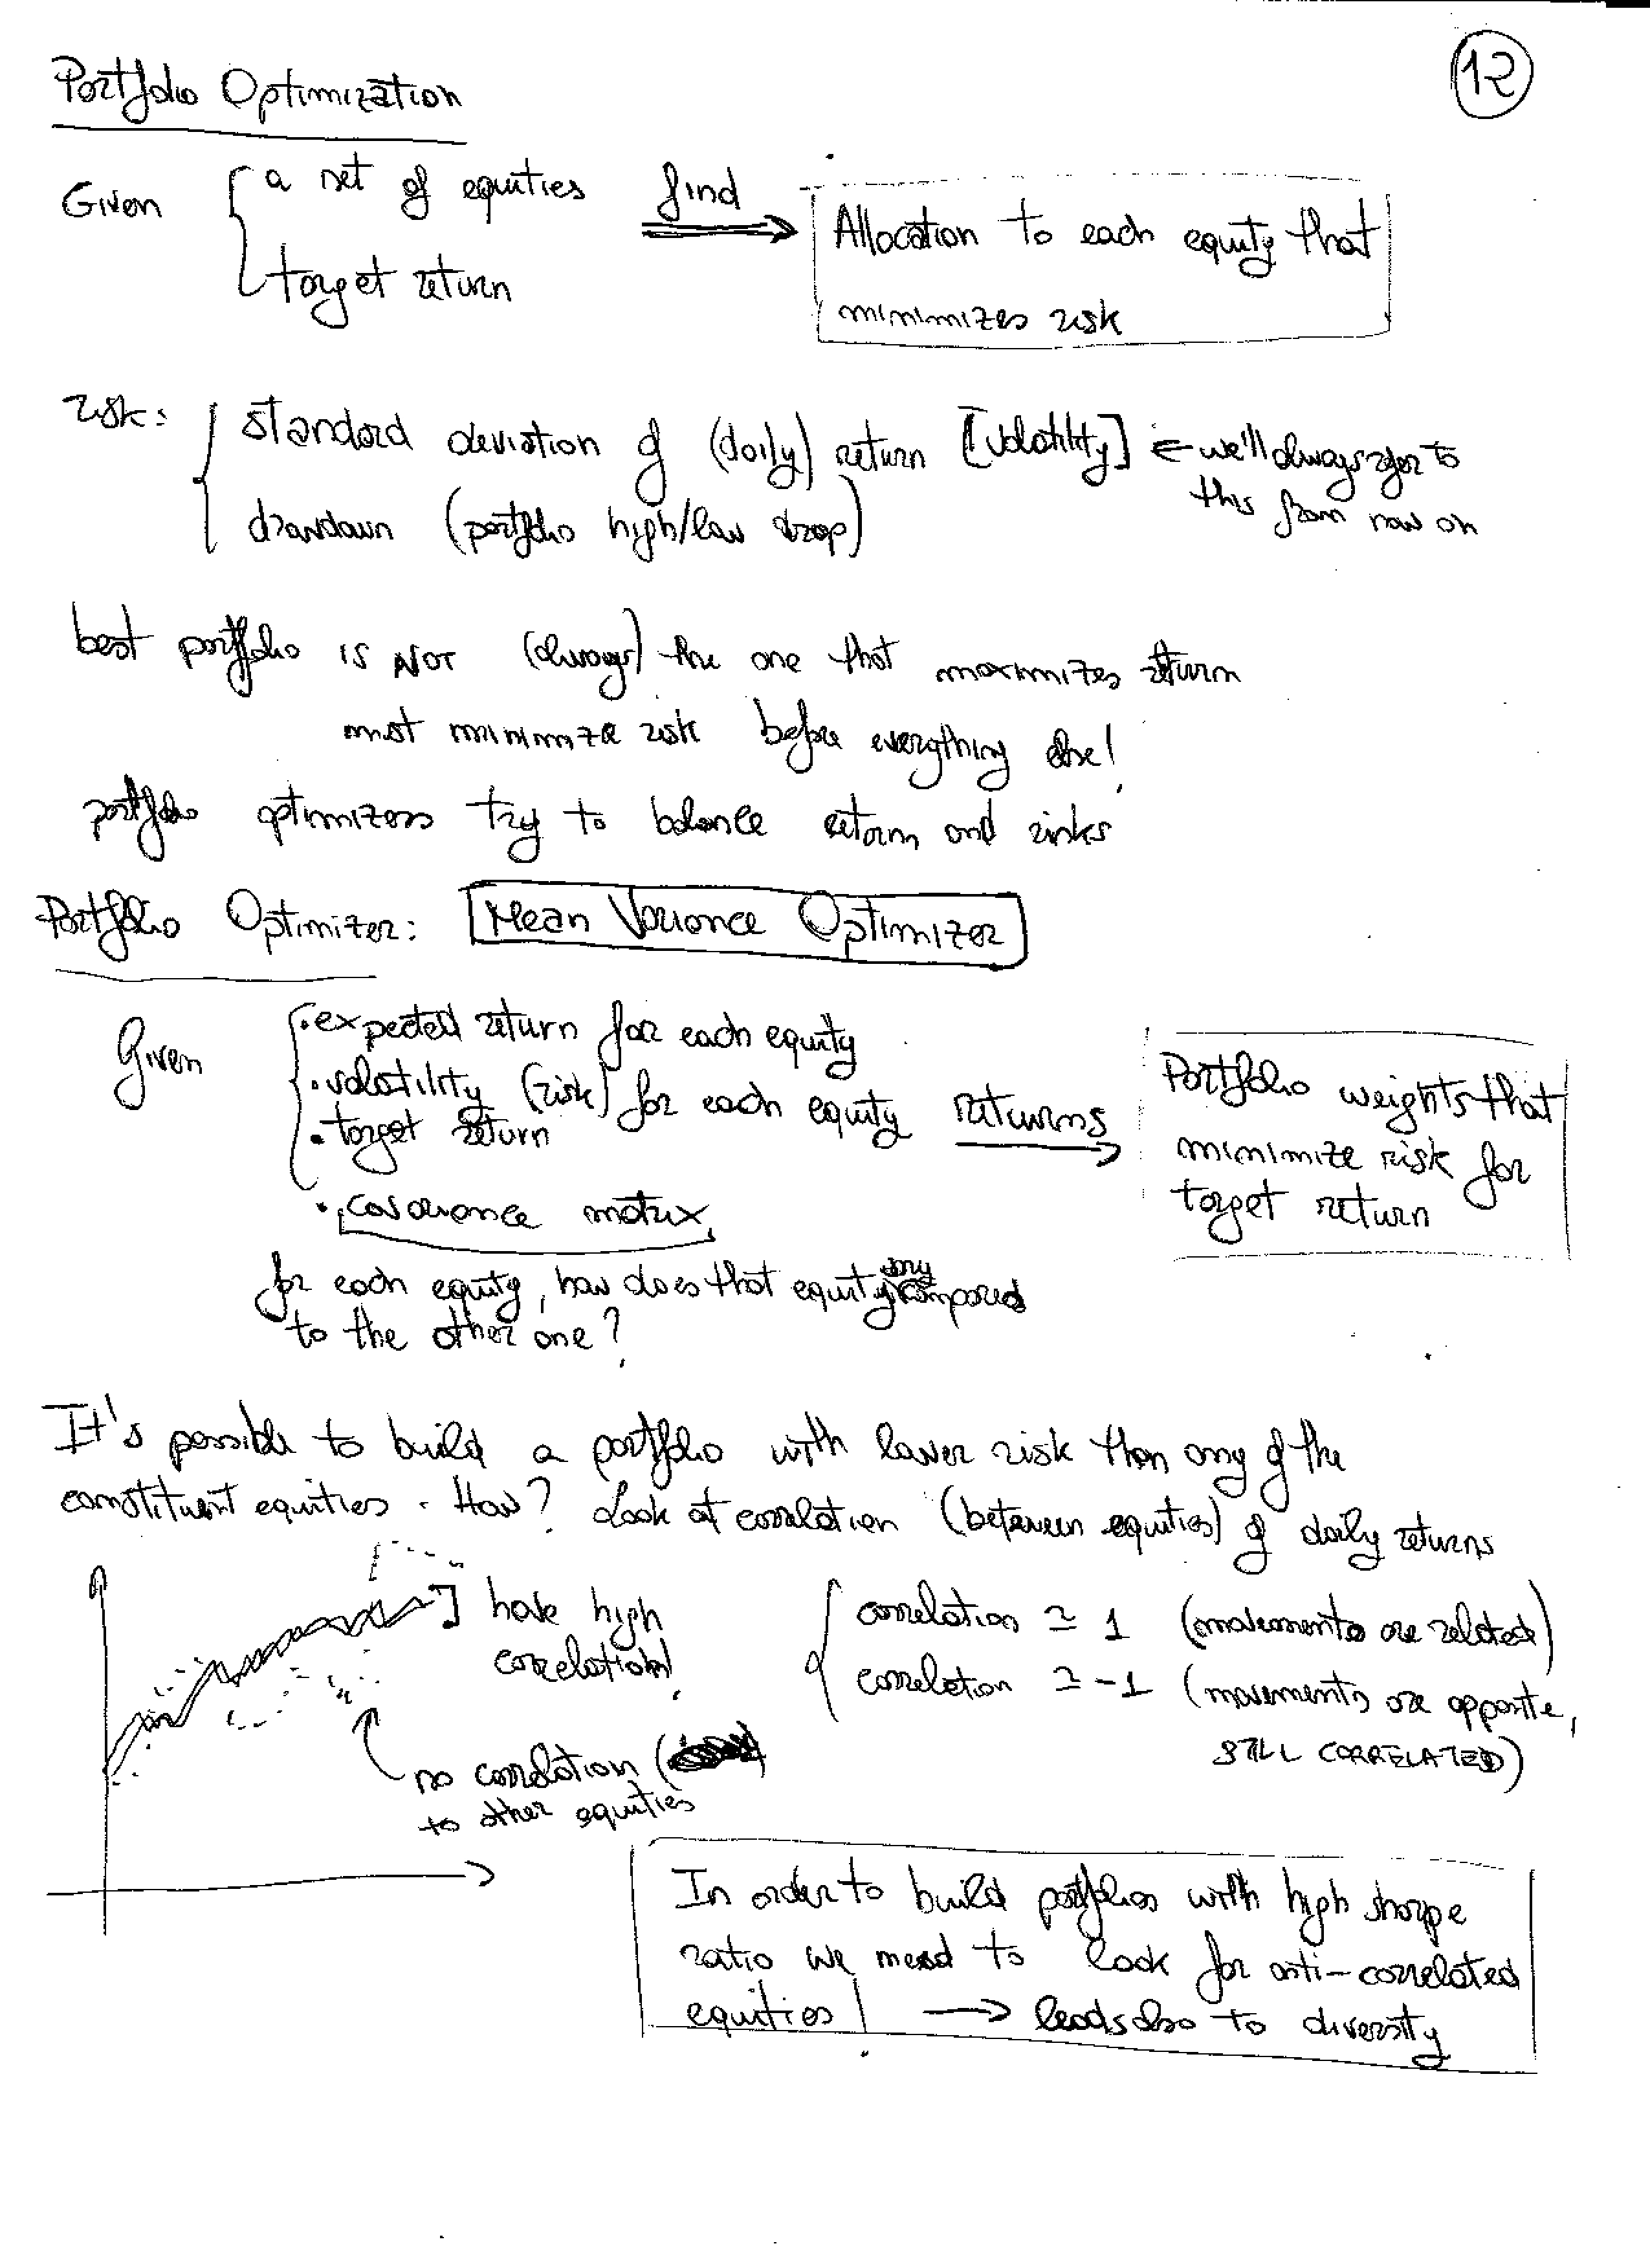 12
Portfolio Optimization
Given { a set of equities find ⟹ Allocation to each equity that
target return minimizes risk
risk: { standard deviation of (daily) return [volatility] ← we'll always refer to
this from now on
drawdown (portfolio high/low drop)
best portfolio is NOT (always) the one that maximizes return
must minimize risk before everything else!
portfolio optimizers try to balance return and risks
Portfolio Optimizer: Mean Variance Optimizer
Given { · expected return for each equity
· volatility (risk) for each equity returns → Portfolio weights that
· target return minimize risk for
· covariance matrix target return
for each equity, how does that equity compares
to the other one?
It's possible to build a portfolio with lower risk than any of the
constituent equities. How? Look at correlation (between equities) of daily returns
] have high
correlation!
{ correlation ≃ 1 (movements are related)
correlation ≃ -1 (movements are opposite,
STILL CORRELATED)
no correlation
to other equities
In order to build portfolios with high sharpe
ratio we need to look for anti-correlated
equities! → leads also to diversity